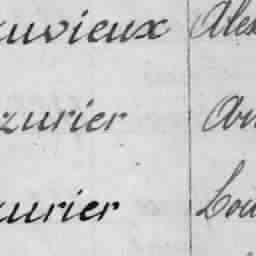 uvieux Alex
zurier
urier Lou